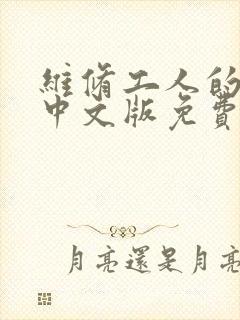 維脩工人的
中文版免費
月亮還是月亮